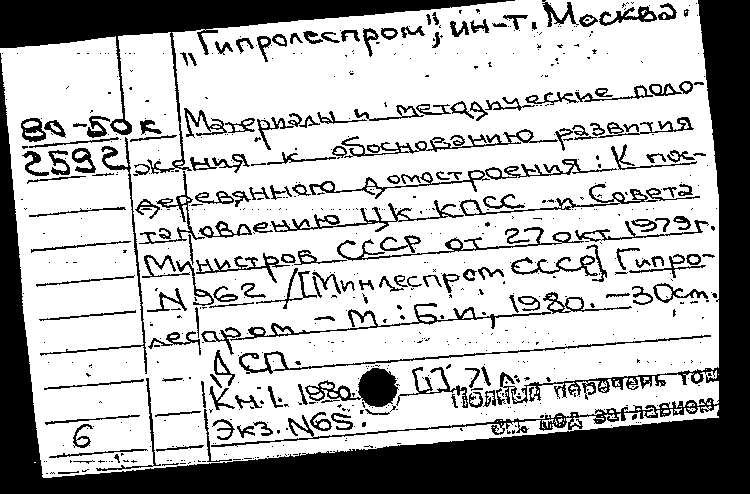 „Гипролеспром", ин-т. Москва.
80-50к Материалы и методические поло-
2592 жения к обоснованию развития
деревянного домостроения: К пос-
тановлению ЦК КПСС и Совета
Министров СССР от 27 окт 1979г.
N 962 /[Минлеспром СССР], Гипро-
леспром. - М.: Б.и., 1980. - 30см.
ДСП.
Кн.1. 1980 [1] 71 л.
Полный перечень том
Экз. N65.
см. под заглавием
6